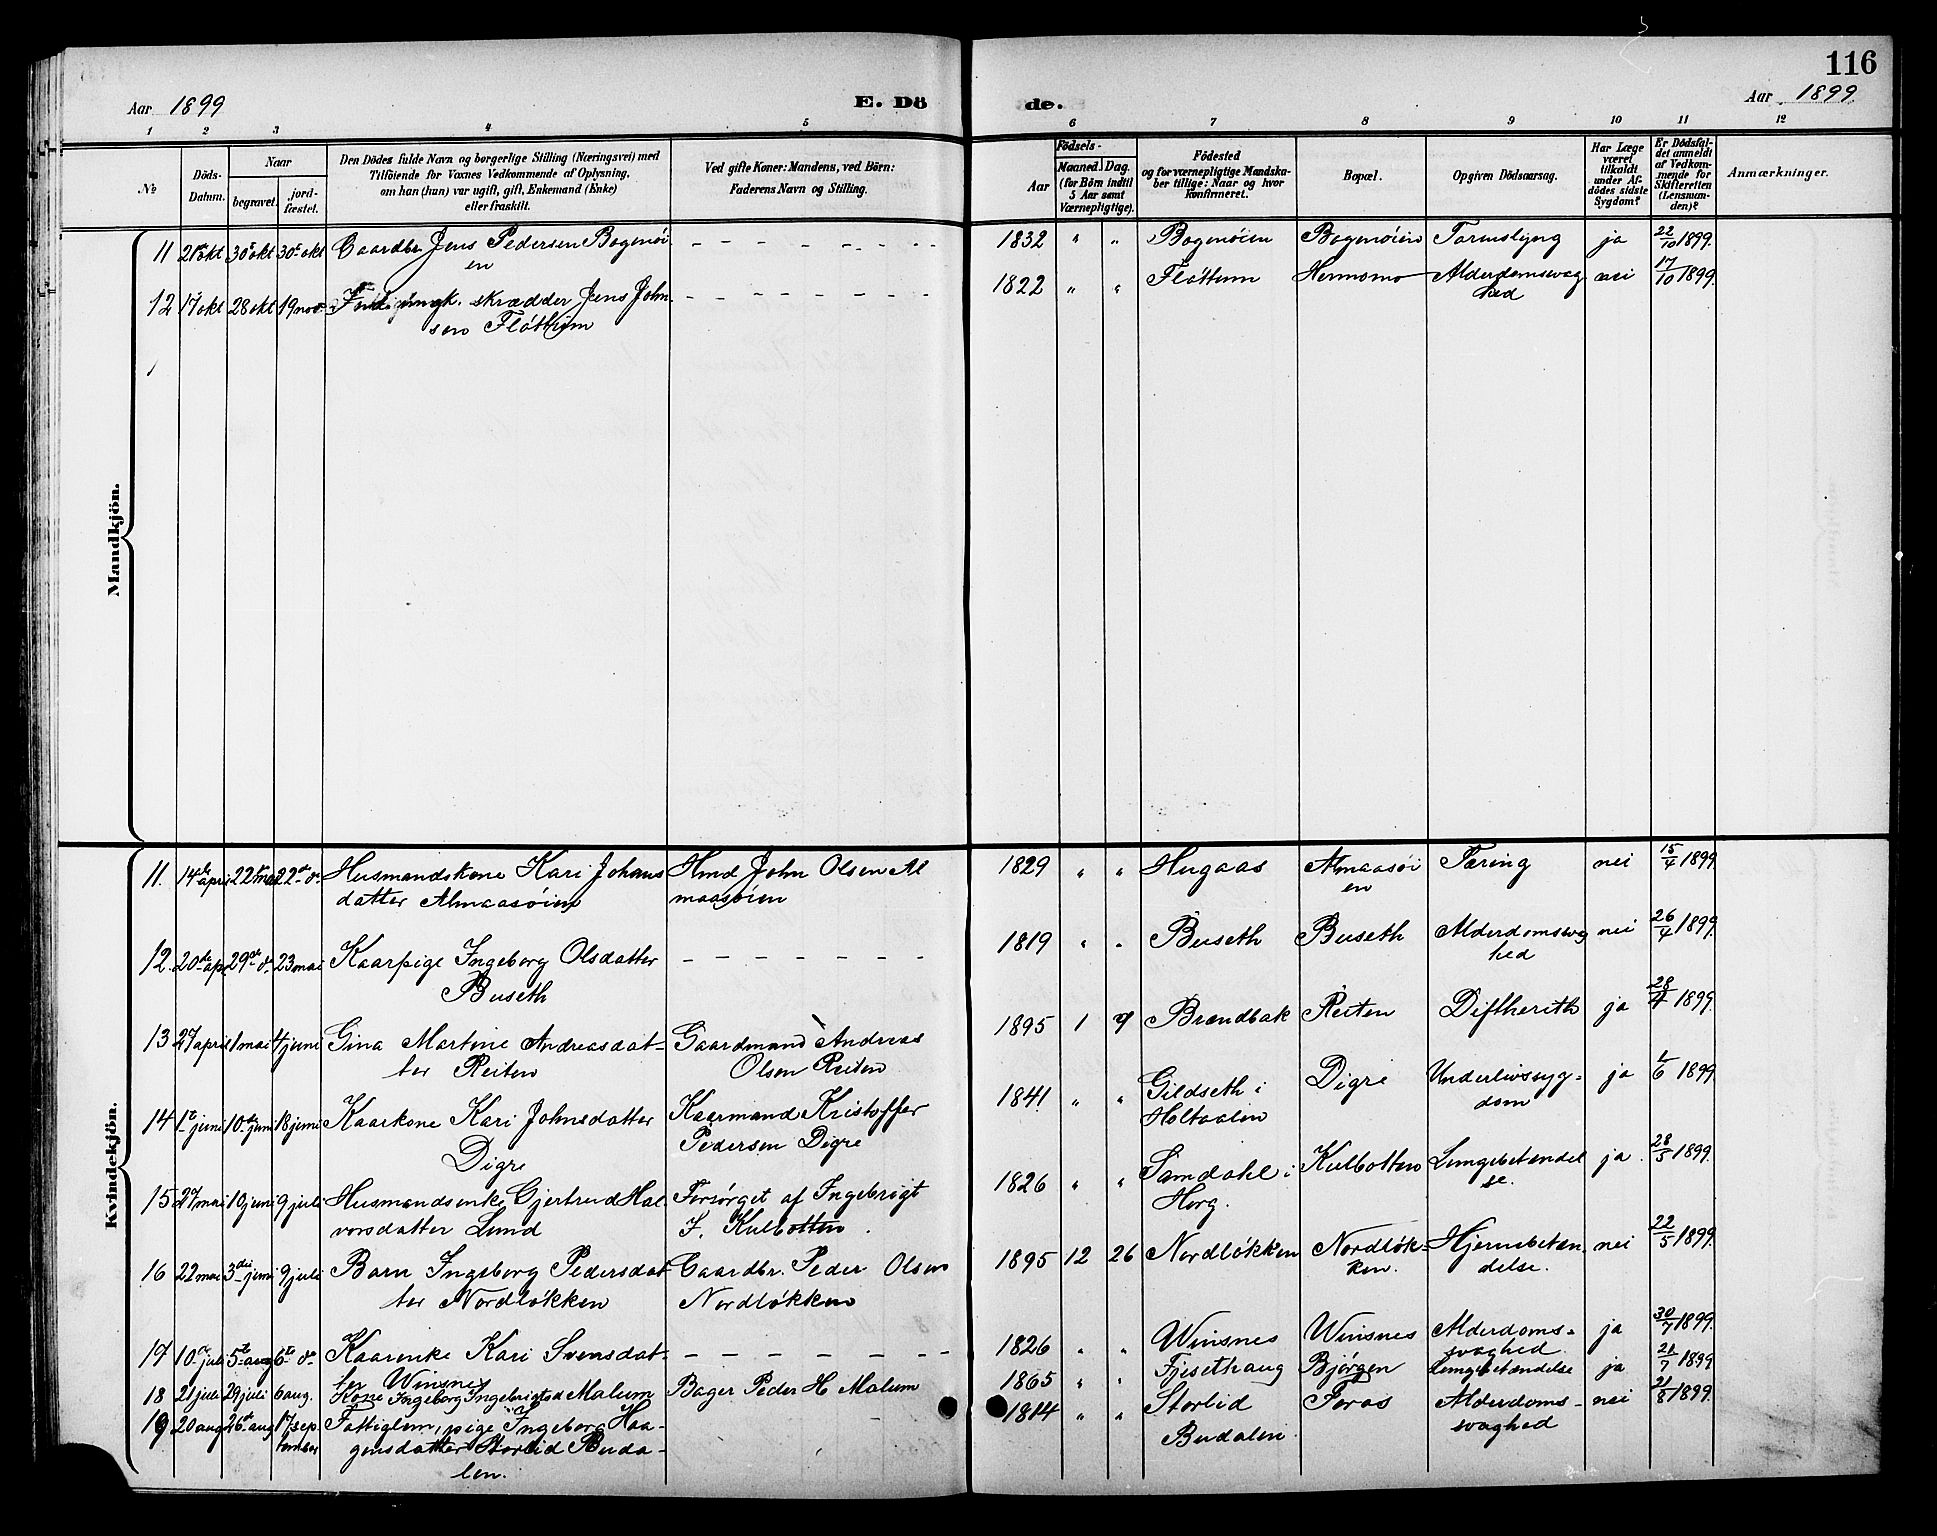 116
Aar 1899
E. Dö
de.
Aar 1899
1 2 3 4 5 6 7 8 9 10 11 12
№
Döds-
Datum.
Naar
begravet.
jord-
fæstet.
Den Dödes fulde Navn og borgerlige Stilling (Næringsvei) med
Tilföiende for Voxnes Vedkommende af Oplysning,
om han (hun) var ugift, gift, Enkemand (Enke)
eller fraskilt.
Ved gifte Koner: Mandens, ved Börn:
Faderens Navn og Stilling.
Födsels-
Aar
Maaned. Dag.
(for Börn indtil
5 Aar samt
Værnepligtige).
Födested
og for værnepligtige Mandska-
ber tillige: Naar og hvor
Konfirmeret.
Bopæl.
Opgiven Dödsaarsag.
Har Læge
været
tilkaldt
under Af-
dödes sidste
Sygdom?
Er Dödsfal-
det anmeldt
af Vedkom-
mende for
Skifteretten
(Lensman-
den)?
Anmærkninger.
Mandkjön.
11 21 okt 30 okt 30 okt Gaardbr Jens Pedersen Bogenöi
en
1832 " " Bogenöien Bogenöien Tarmslyng ja 22/10 1899.
12 17 okt 28 okt 19 nov skrædder Jens John-
sen Flöttum
1822 " " Flöttum Hermomo Alderdomssvag
hed nei 17/10 1899.
Kvindekjön.
11. 14de april 22 mai 22de do Husmandskone Kari Johans
datter Almaasöien
Hmd John Olsen Al
maasöien
1829 " " Hugaas Almaasöi
en Tæring nei 15/4 1899.
12. 20de apr 29de do 23 mai Kaarpige Ingeborg Olsdatter
Buseth
1819 " " Buseth Buseth Alderdomssvag
hed nei 26/4 1899.
13 27 april 1 mai 4 juni Gina Martine Andreasdat-
ter Reiten
Gaardmand Andreas
Olsen Reiten
1895 1 9 Brændbak Reiten Diftherith ja 28/4 1899.
14 1te juni 10de juni 18 juni Kaarkone Kari Johnsdatter
Digre
Kaarmand Kristoffer
Pedersen Digre
1841 " " Gildseth i
Holtaalen Digre Underlivssyg-
dom ja 6 1899
15 27 mai 10 juni 9 juli Husmandsenke Gjertrud Hal-
vorsdatter Lund
Forsörget af Ingebrigt
J. Kulbotten.
1826 " " Samdahl i
Horg. Kulbotten Lungebetændel
se. ja 28/5 1899.
16 22 mai 3die juni 9 juli Barn Ingeborg Pedersdat-
ter Nordlökken
Gaardbr. Peder Olsen
Nordlökken
1895 12 26 Nordlökken Nordlök-
ken. Hjernebetæn-
delse. nei 22/5 1899.
17 10 juli 5te aug 6te do Kaarenke Kari Svensdat-
ter Winsnes
1826 " " Winsnes Winsnes Alderdoms-
svaghed ja 30/7 1899.
18 21 juli 29 juli 6 aug. Kone Ingeborg Ingebrigtsd Malum Bager Peder H Malum
1865 " " Fjesethaug Bjørgen Lungebetændelse ja 21/7 1899
19 20 aug 26de aug 17 sep
tember Fattiglem, pige Ingeborg Haa-
gensdatter Storlid Buda-
len.
1814 " " Storlid
Budalen Foros Alderdoms-
svaghed nei 21/8 1899.